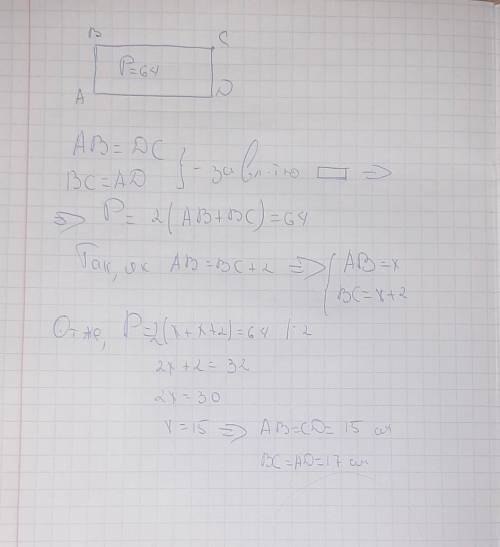 B C
P=64
A D
AB = DC
BC = AD } - за вл-тю ▭ =>
=> P = 2(AB+BC) = 64
Так, як AB = BC + 2 => { AB = x
BC = x+2
Отже, P = 2(x+x+2) = 64 | :2
2x + 2 = 32
2x = 30
x = 15 => AB = CD = 15 см
BC = AD = 17 см